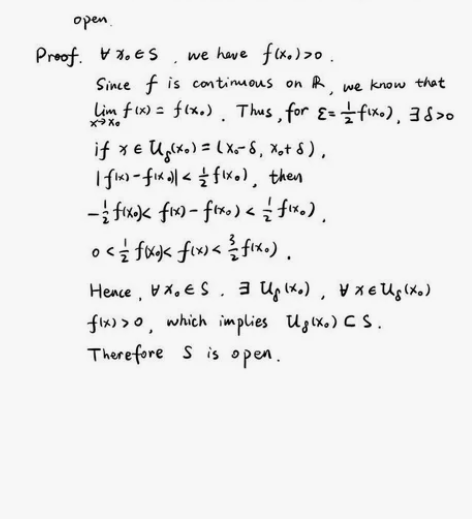 open.
Proof. ∀ x₀ ∈ S, we have f(x₀)>0.
Since f is continuous on ℝ, we know that
lim x→x₀ f(x) = f(x₀). Thus, for ε = 1/2 f(x₀), ∃ δ>0
if x ∈ U_δ(x₀) = (x₀-δ, x₀+δ),
|f(x)-f(x₀)| < 1/2 f(x₀), then
-1/2 f(x₀) < f(x) - f(x₀) < 1/2 f(x₀),
0 < 1/2 f(x₀) < f(x) < 3/2 f(x₀).
Hence, ∀ x₀ ∈ S. ∃ U_δ(x₀), ∀ x ∈ U_δ(x₀)
f(x) > 0, which implies U_δ(x₀) ⊂ S.
Therefore S is open.